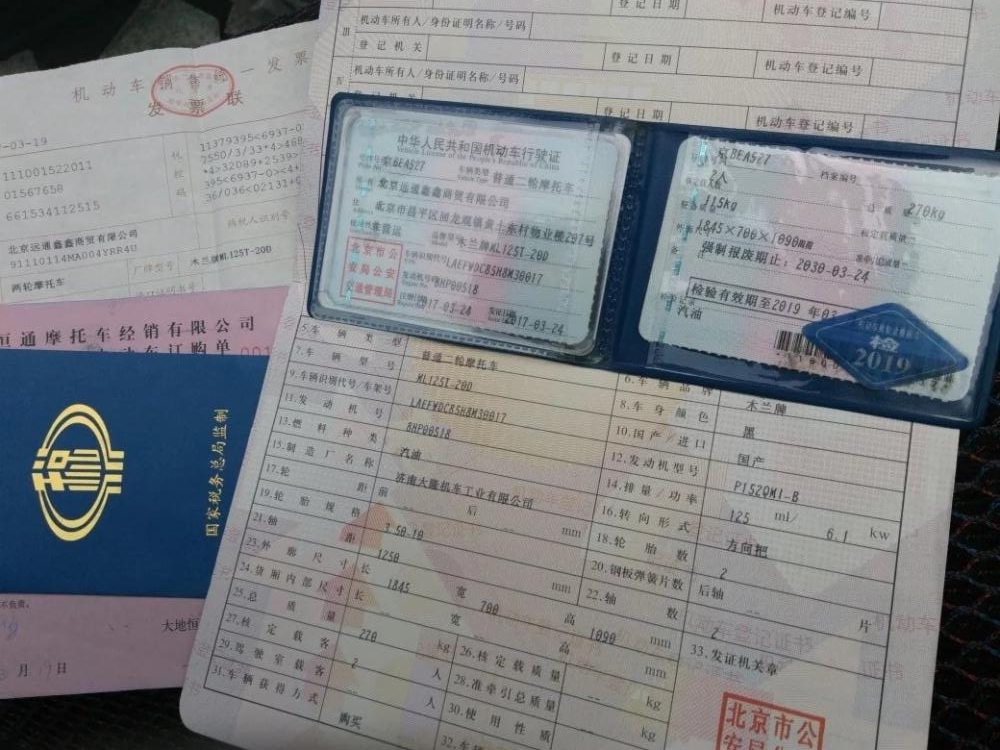 登记日期
机动车登记编号
机动车所有人/身份证明名称/号码
登记机关
登记日期
机动车登记编号
机动车所有人/身份证明名称/号码
登记日期
机动车登记编号
机动车销售统一发票
发票联
-03-19
111001522011
01567658
661534112515
机
控
码
11379395<6937-0
纳税人识别号
北京远通鑫鑫商贸有限公司
91110114MA004YRR4U
两轮摩托车
厂牌型号
木兰牌ML125T-20D
恒通摩托车经销有限公司
国家税务总局监制
大地恒
月19日
中华人民共和国机动车行驶证
Vehicle License of the People's Republic of China
京BEA527
车辆类型
普通二轮摩托车
北京远通鑫鑫商贸有限公司
木兰牌ML125T-20D
北京市公
安局公安
交通管理局
车辆识别代号
LAEFWDC85H8M30017
发动机号码
8HP00518
2017-03-24
2017-03-24
京BEA527
档案编号
2人
270kg
115kg
1845×700×1090mm
强制报废期止：2030-03-24
检验有效期至2019年03
汽油
检
2019
5.车辆类型
普通二轮摩托车
6.车辆品牌
木兰牌
7.车辆型号
ML125T-20D
8.车身颜色
黑
9.车辆识别代号/车架号
LAEFWDC85H8M30017
10.国产/进口
国产
11.发动机号
8HP00518
12.发动机型号
P152QMI-B
13.燃料种类
汽油
14.排量/功率
125 ml/ 6.1 kw
15.制造厂名称
济南大隆机车工业有限公司
16.转向形式
方向把
17.轮距
前 -- 后 -- mm
18.轮胎数
2
19.轮胎规格
3.50-10
20.钢板弹簧片数
后轴 -- 片
21.轴距
1250 mm
22.轴数
2
23.外廓尺寸
长 1845 宽 700 高 1090 mm
24.货厢内部尺寸
长 -- 宽 -- 高 -- mm
33.发证机关章
25.总质量
270 kg
26.核定载质量
-- kg
27.核定载客
2 人
28.准牵引总质量
-- kg
29.驾驶室载客
-- 人
30.使用性质
31.车辆获得方式
购买
北京市公